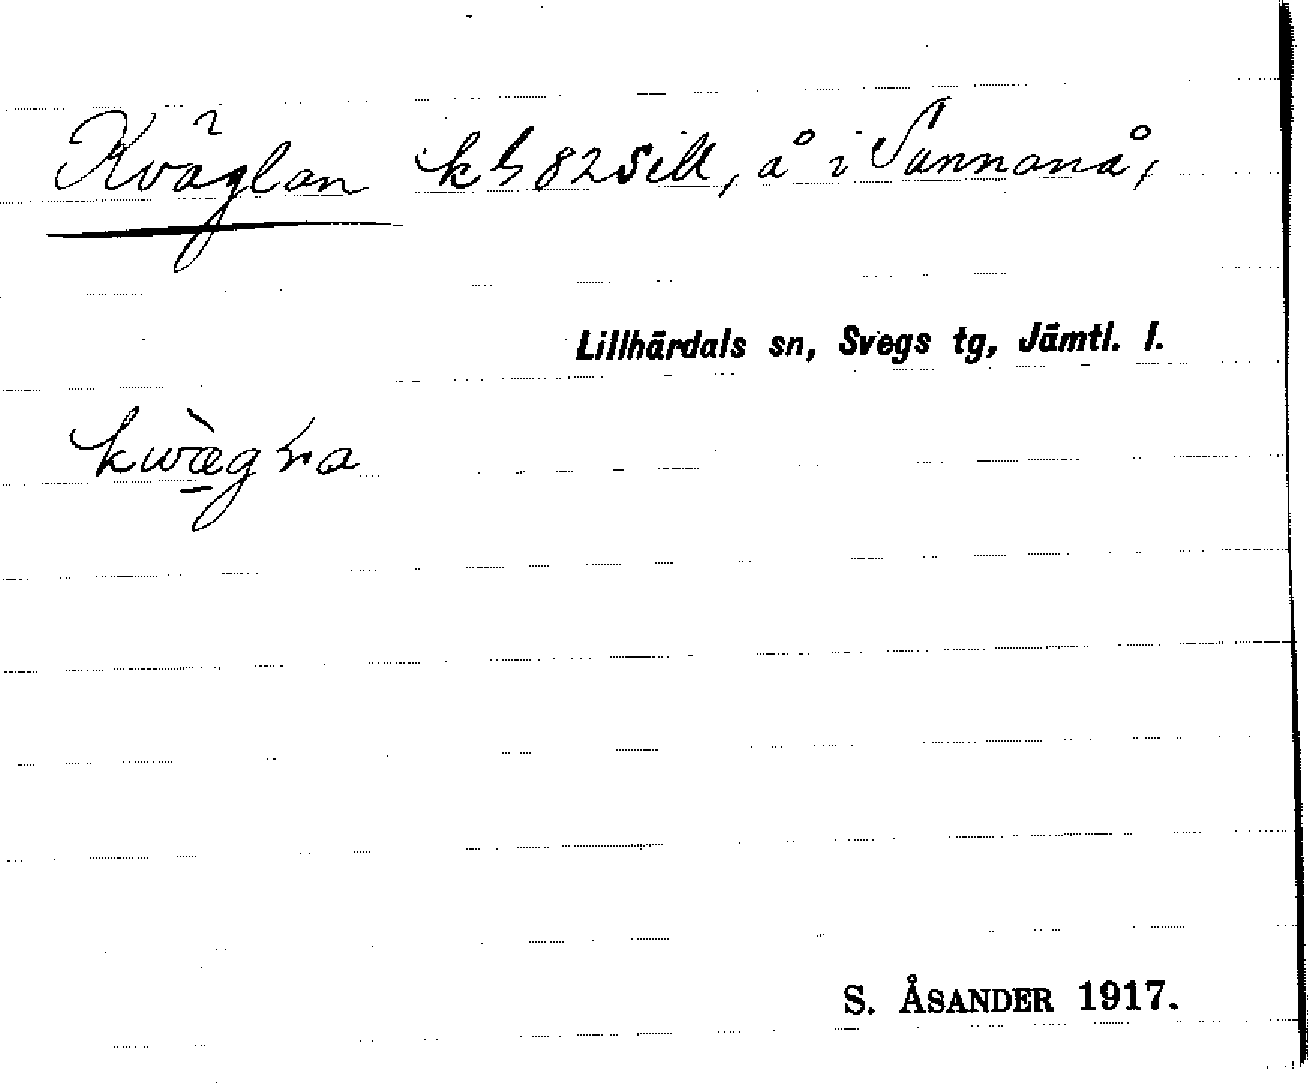 Kväglan kb 82 Sill, å i Sunnanå,
Lillhärdals sn, Svegs tg, Jämtl. l.
kwæ̀gra
S. ÅSANDER 1917.